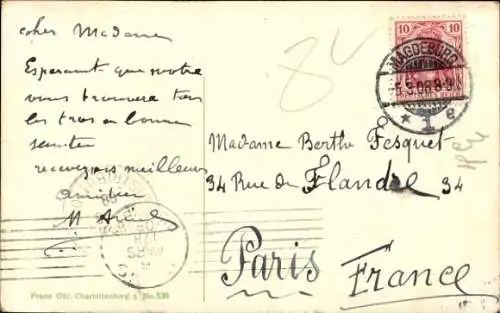 cher Madame
Esperant que notre
vous trouvera tous
les tros en bonne
senter
recevez mis meilleurs
amitier
M
10 10
MAGDEBURG
5.3.06.8-9
* 1 e
Madame Berthe Fesquet
34 Rue de Flandre 34
Paris
France
Franz Obl. Charlottenburg 5 No.530